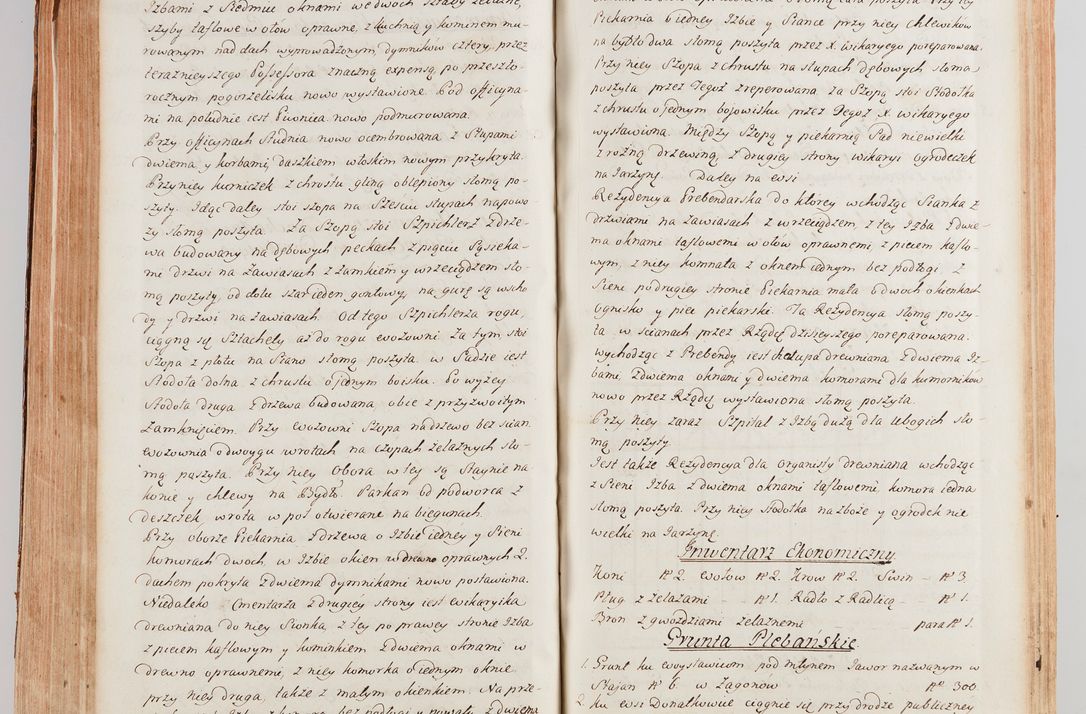 Izbami z Siedmiu oknami we dwoch Sztaby żelazne,
szyby taflowe w ołow oprawne, z Kuchnią y kominem mu-
rowanym nad dach wyprowadzonym, dymnikow cztery, przez
teraznieyszego Possessora znaczną expensą, po przeszło-
rocznym pogorzelisku nowo wystawione. Pod officyna-
mi na południe iest Piwnica nowo podmurowana.
Przy officynach Studnia nowo ocembrowana z Słupami
dwiema y korbami, daszkiem włoskim nowym przykryta.
Przy niey kurniczek z chrustu gliną oblepiony słomą po-
szyty. Idąc daley stoi szopa na Sześciu słupach napowo-
zy słomą poszyta. Za Szopą stoi Szpichlerz z drze-
wa budowany na dębowych peckach z pięciu Sąsieka-
mi drzwi na zawiasach z zamkiem y wrzeciądzem sło-
mą poszyty, od dołu szar ieden gontowy, na gurę są wscho
dy y drzwi na zawiasach. Od tego Szpichlerza rogu,
ciągną się Sztachety aż do rogu wozowni. Za tym stoi
Szopa z płotu na Siano słomą poszyta, w Sadzie iest
Stodoła dolna z chrustu o jednym boisku. Powyżey
Stodoła druga z drzewa budowana, obie z przyzwoitym
Zamknięciem. Przy wozowni Szopa na drzewo bez scian.
wozownia o dwoygu wrotach na czopach żelaznych sło-
mą poszyta. Przy niey Obora w tey są Staynie na
konie y chlewy na Bydło. Parkan od podworca z
deszczek, wrota w poł otwierane na biegunach.
Przy oborze Piekarnia z drzewa o Izbie iedney y Sieni
komorach dwoch, w Izbie okien w drewno oprawnych 2.
dachem pokryta z dwiema dymnikami nowo postawiona.
Niedaleko Cmentarza z drugiéy strony iest wikaryika
drewniana do niey Sionka z tey po prawey stronie Izba
z piecem kaflowym y kominkiem z dwiema oknami w
drewno oprawnemi, z niey komorka o iednym oknie
przy niey druga, także z małym okienkiem. Na prze-
bez podłogi y powały z dwiema
Piekarnia o iedney Izbie y Siance przy niey chlewikow
na bydło dwa słomą poszyta przez X. wikaryego poreparowana.
Przy niey Szopa z chrustu na słupach dębowych słomą
poszyta przez Tegoż zreperowana za Szopą stoi Stodołka
z chrustu o jednym bojowisku przez Tegoż X. wikaryego
wystawiona. Między Szopą y piekarnią Sad niewielki
z rożną drzewiną, z drugiey strony wikaryi ogrodeczek
na Jarzynę. Daley na wsi
Rezydencya Prebendarska do ktorey wchodząc Sianka z
drzwiami na zawiasach z wrzeciądzem, z tey Izba z dwie-
ma oknami taflowemi w ołow oprawnemi, z piecem kaflo-
wym, z niey komnata z oknem iednym bez podłogi, z
Sieni po drugiey stronie Piekarnia mała o dwoch okienkach
Ognisko y piec piekarski. Ta Rezydencya słomą poszy-
ta, w ścianach przez Rządcę dzisieyszego, poreparowana.
Wychodząc z Prebendy iest chałupa drewniana z dwiema Iz-
bami, z dwiema oknami y dwiema komorami dla komornikow
nowo przez Rządcę wystawiona słomą poszyta.
Przy niey zaraz Szpital z Izbą dużą dla Ubogich sło-
mą poszyty.
Iest także Rezydencya dla Organisty drewniana wchodząc
z Sieni Izba z dwiema oknami taflowemi, komora iedna
słomą poszyta. Przy niey stodołka na zboże y ogrodek nie
wielki na Jarzynę.
Inwentarz Ekonomiczny
Koni N° 2. wołow N° 2. Krow N° 2. Swin – N° 3.
Pług z żelazami – N° 1. Radło z Radlicą – N° 1.
Bron z gwoździami żelaznemi para N° 1.
Grunta Plebańskie
1. Grunt ku woysławicom, pod młynem Jawor nazwanym w
Stajan N° 6. w Zagonow N° 300.
2. ku wsi Donatkowie ciągnie się przy drodze publiczney